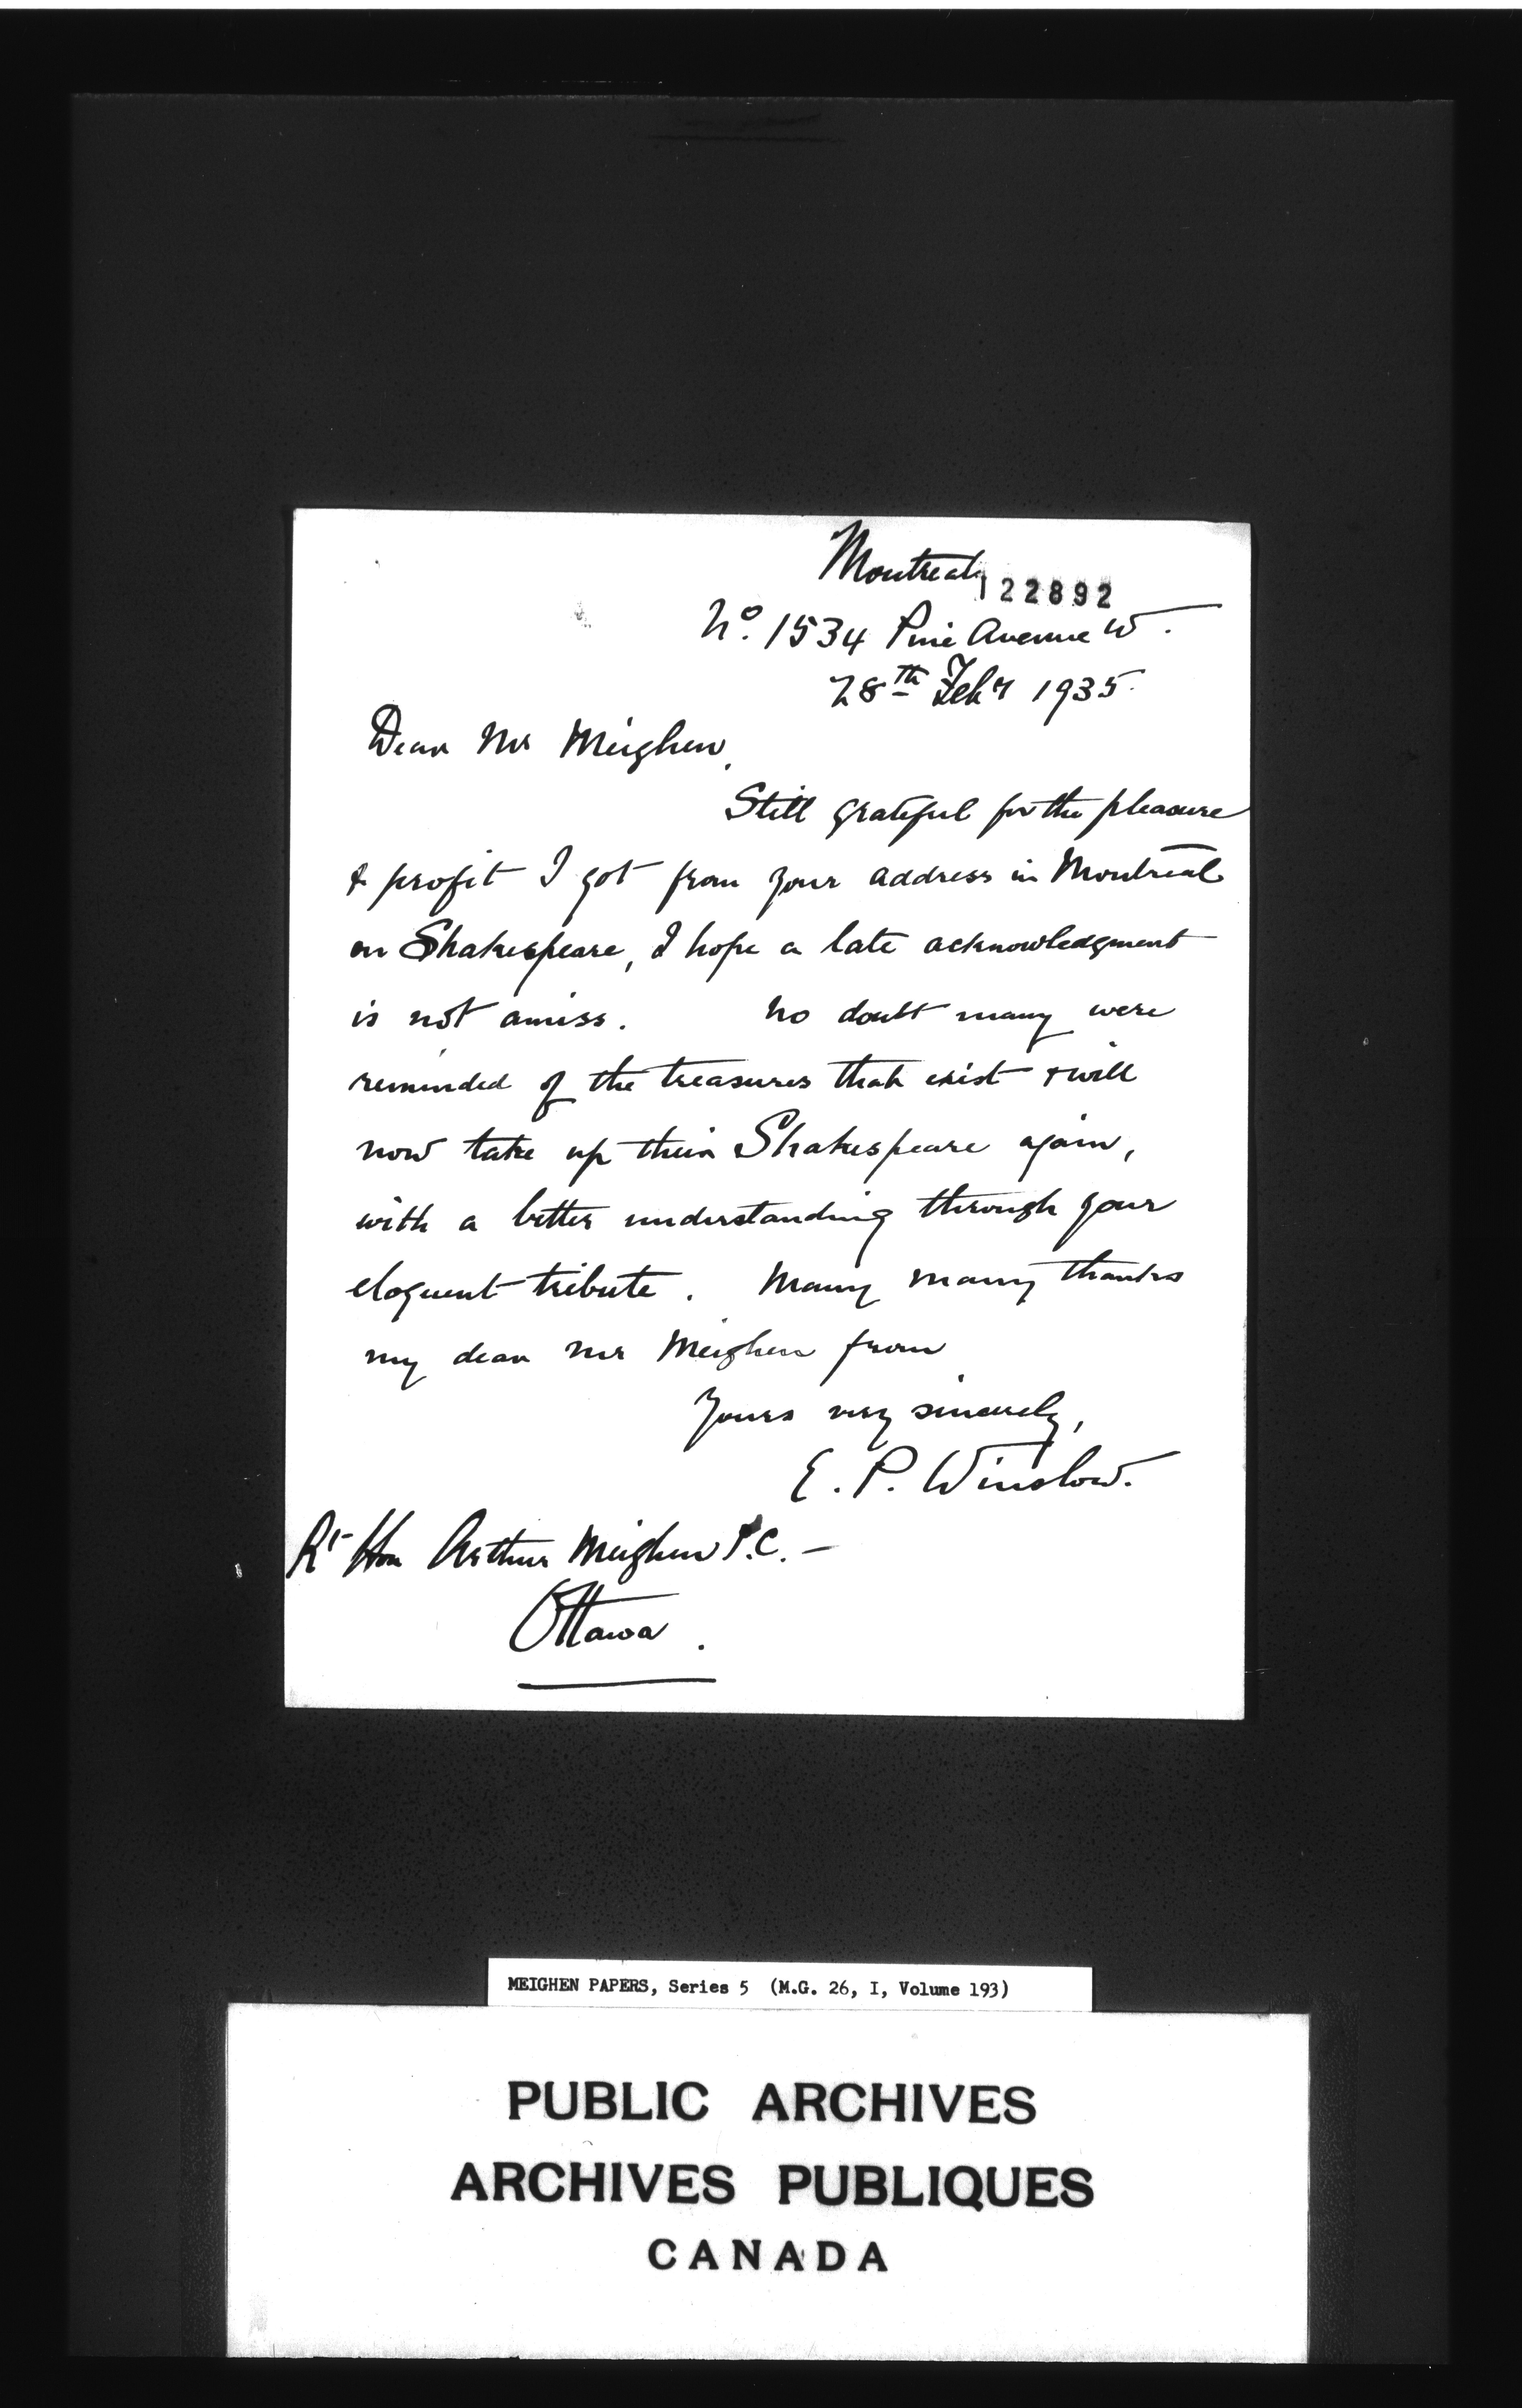 Montreal,
122892
No. 1534 Pine Avenue W.
28th Feby 1935.
Dear Mr Meighen,
Still grateful for the pleasure
& profit I got from your address in Montreal
on Shakespeare, I hope a late acknowledgment
is not amiss. No doubt many were
reminded of the treasures that exist & will
now take up their Shakespeare again,
with a better understanding through your
eloquent tribute. Many many thanks
my dear Mr Meighen from
Yours very sincerely,
E. P. Winslow.
Rt Hon Arthur Meighen P.C. –
Ottawa.
MEIGHEN PAPERS, Series 5 (M.G. 26, I, Volume 193)
PUBLIC ARCHIVES
ARCHIVES PUBLIQUES
CANADA